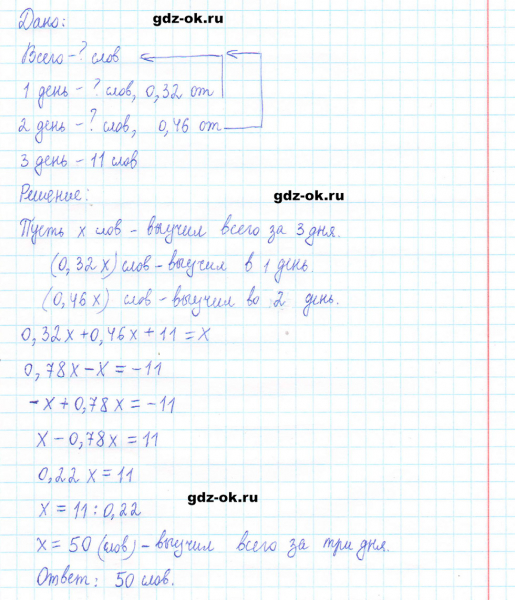 Дано:
gdz-ok.ru
Всего - ? слов
1 день - ? слов, 0,32 от
2 день - ? слов, 0,46 от
3 день - 11 слов
Решение:
gdz-ok.ru
Пусть x слов - выучил всего за 3 дня.
(0,32x) слов - выучил в 1 день.
(0,46x) слов - выучил во 2 день.
0,32x + 0,46x + 11 = x
0,78x - x = -11
-x + 0,78x = -11
x - 0,78x = 11
0,22x = 11
gdz-ok.ru
x = 11 : 0,22
x = 50 (слов) - выучил всего за три дня.
Ответ: 50 слов.